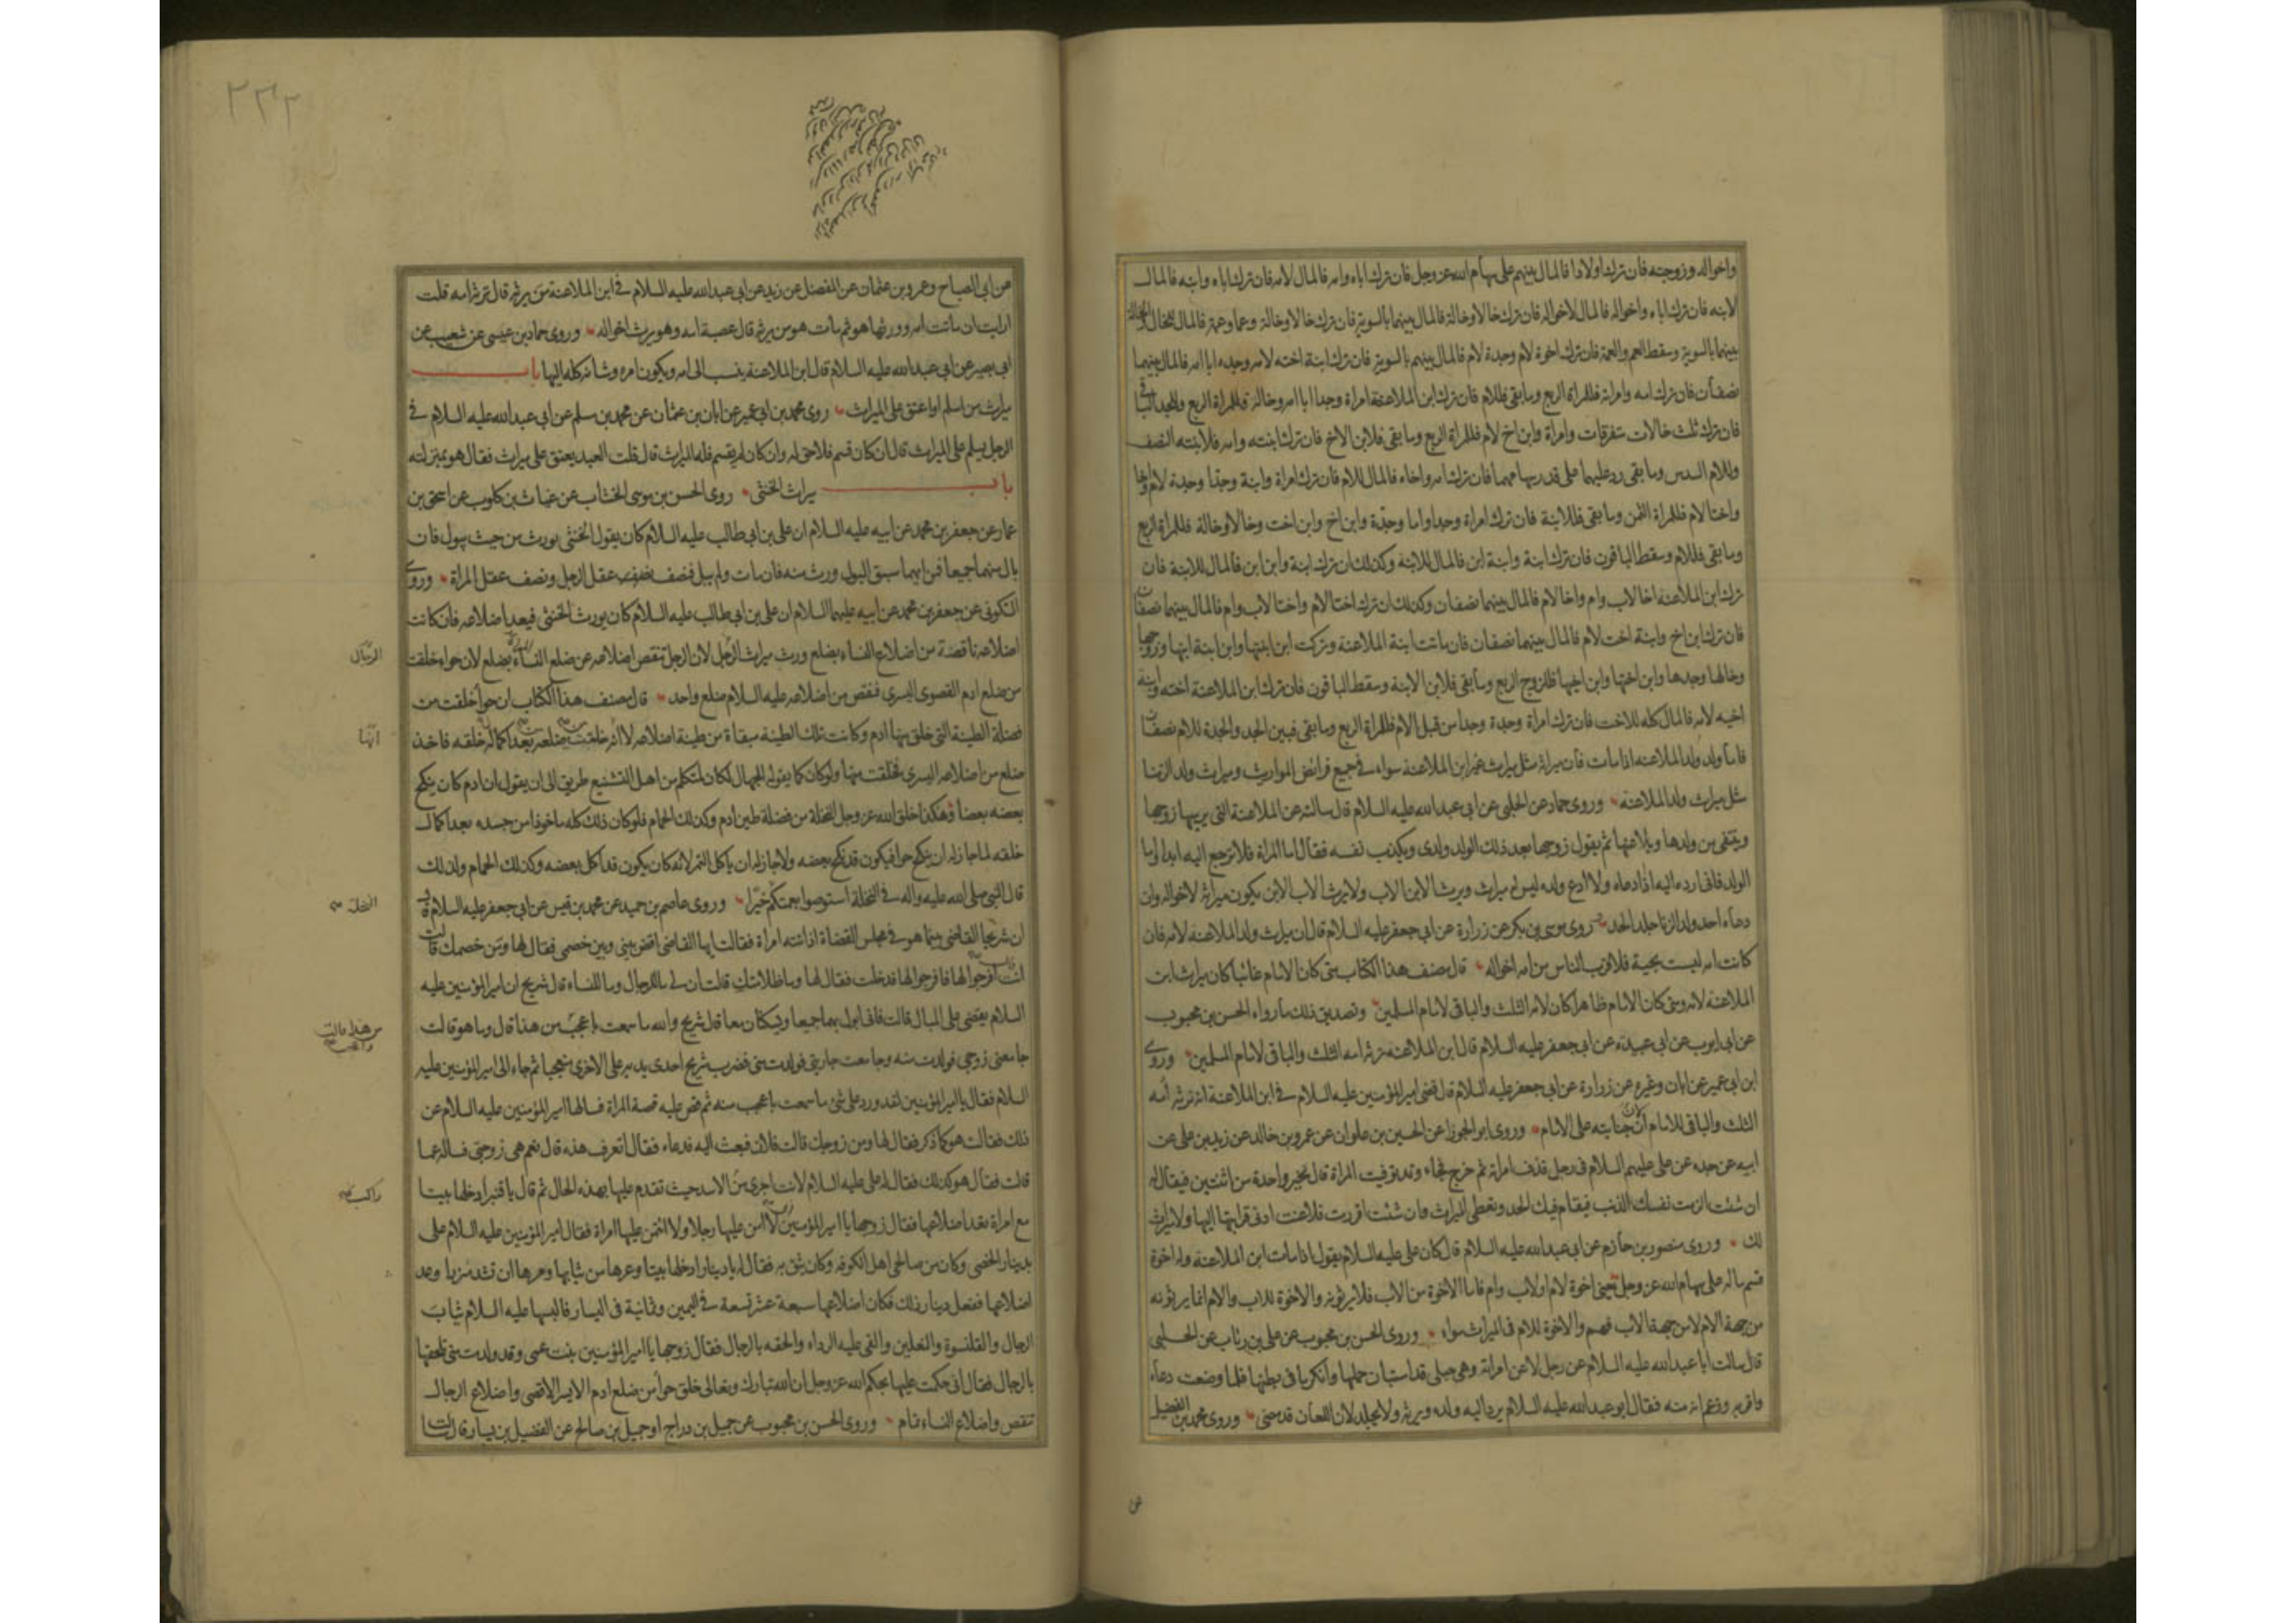 واخواله وزوجته فان ترك اولادا فالمال بينهم على سهام الله عز وجل فان ترك اباه وامه فالمال لامه فان ترك اباه وابنه فالمال
لابنه فان ترك اباه واخواله فالمال لاخواله فان ترك خالا وخالة فالمال بينهما بالسوية فان ترك خالا وخالة وعما وعمة فالمال للخال والخالة
بينهما بالسوية وسقط العم والعمة فان ترك اخوة لام وجدة لام فالمال بينهم بالسوية فان ترك ابنة اخته لامه وجده ابا امه فالمال بينهما
نصفان فان ترك امه وامراته فللمراة الربع وما بقى فللام فان ترك ابن الملاعنة امراة وجدا ابا امه وخالة فللمراة الربع وللجد الباقى
فان ترك ثلث خالات متفرقات وامراة وابن اخ لام فللمراة الربع وما بقى فلابن الاخ فان ترك ابنته وامه فلابنته النصف
وللام السدس وما بقى رد عليهما على قدر سهامهما فان ترك امه واخاه فالمال للام فان ترك امراة وابنة وجدا وجدة لام واخا
واختا لام فللمراة الثمن وما بقى فللابنة فان ترك امراة وجدا واما وجدة وابن اخ وابن اخت وخالا وخالة فللمراة الربع
وما بقى فللام وسقط الباقون فان ترك ابنة وابنة ابن فالمال للابنة وكذلك ان ترك ابنة وابن ابن فالمال للابنة فان
ترك ابن الملاعنه اخا لاب وام واخا لام فالمال بينهما نصفان وكذلك ان ترك اختا لام واختا لاب وام فالمال بينهما نصفان
فان ترك ابن اخ وابنة اخت لام فالمال بينهما نصفان فان ماتت ابنة الملاعنة وتركت ابن ابنتها وابن ابنة ابنها وزوجها
وخالها وجدها وابن اختها وابن اخيها فللزوج الربع وما بقى فلابن الابنة وسقط الباقون فان ترك ابن الملاعنة اخته وابنة
اخيه لامه فالمال كله للاخت فان ترك امراة وجدة وجدا من قبل الام فللمراة الربع وما بقى فبين الجد والجدة للام نصفان
فاما ولد ولد الملاعنه اذا مات فان ميراثه مثل ميراث غير ابن الملاعنة سواء فى جميع فرائض المواريث وميراث ولد الزنا
مثل ميراث ولد الملاعنة وروى حماد عن الحلبى عن ابى عبد الله عليه السلام قال سالته عن الملاعنة التى يرميها زوجها
وينتفى من ولدها ويلاعنها ثم يقول زوجها بعد ذلك الولد ولدى ويكذب نفسه فقال اما المراة فلا ترجع اليه ابدا واما
الولد فانى ارده اليه اذا ادعاه ولا ادع ولده ليس له ميراث ويرث الابن الاب ولا يرث الاب الابن يكون ميراثه لاخواله وان
دعاه احد ولد الزنا جلد الحد روى موسى بن بكر عن زرارة عن ابى جعفر عليه السلام قال ان ميراث ولد الملاعنة لامه فان
كانت امه ليست بحية فلاقرب الناس من امه اخواله قال مصنف هذا الكتاب متى كان الامام غائبا كان ميراث ابن
الملاعنة لامه ومتى كان الامام ظاهرا كان لامه الثلث والباقى لامام المسلمين وتصديق ذلك ما رواه الحسن بن محبوب
عن ابى ايوب عن ابى عبيدة عن ابى جعفر عليه السلام قال ابن الملاعنة ترثه امه الثلث والباقى لامام المسلمين وروى
ابن ابى عمير عن ابان وغيره عن زرارة عن ابى جعفر عليه السلام قال قضى امير المؤمنين عليه السلام فى ابن الملاعنة انه ترثه امه
الثلث والباقى للامام لان جنايته على الامام وروى ابو الجوزا عن الحسين بن علوان عن عمرو بن خالد عن زيد بن على عن
ابيه عن جده عن على عليهم السلام فى رجل قذف امراته ثم خرج فجاء وقد توفيت المراة قال يخير واحدة من اثنتين فيقال له
ان شئت الزمت نفسك الذنب فيقام فيك الحد وتعطى الميراث وان شئت اقررت فلاعنت ادنى قرابتها اليها ولا ميراث
لك وروى منصور بن حازم عن ابى عبد الله عليه السلام قال كان على عليه السلام يقول اذا مات ابن الملاعنة وله اخوة
قسم ماله على سهام الله عز وجل يعنى اخوة لام او لاب وام فاما الاخوة من الاب فلا يرثونه والاخوة للاب والام انما يرثونه
من جهة الام لا من جهة الاب فهم والاخوة للام فى الميراث سواء وروى الحسن بن محبوب عن على بن رئاب عن الحلبى
قال سالت ابا عبد الله عليه السلام عن رجل لاعن امراته وهى حبلى قد استبان حملها وانكر ما فى بطنها فلما وضعت دعاه
واقر به وزعم انه منه فقال ابو عبد الله عليه السلام يرد اليه ولده ويرثه ولا يجلد لان اللعان قد مضى وروى محمد بن الفضيل
عن
٢٣٢
عن ابى الصباح وعمرو بن عثمان عن المفضل عن زيد عن ابى عبد الله عليه السلام فى ابن الملاعنة من يرثه قال ترثه امه قلت
ارايت ان ماتت امه وورثها هو ثم مات هو من يرثه قال عصبة امه وهو يرث اخواله وروى حماد بن عيسى عن شعيب عن
ابى بصير عن ابى عبد الله عليه السلام قال ابن الملاعنة ينسب الى امه ويكون امره وشانه كله اليها باب
ميراث من اسلم او اعتق على الميراث روى محمد بن ابى عمير عن ابان بن عثمان عن محمد بن مسلم عن ابى عبد الله عليه السلام فى
الرجل يسلم على الميراث قال ان كان قسم فلا حق له وان كان لم يقسم فله الميراث قال قلت العبد يعتق على ميراث فقال هو بمنزلته
باب ميراث الخنثى روى الحسن بن موسى الخشاب عن غياث بن كلوب عن اسحق بن
عمار عن جعفر بن محمد عن ابيه عليه السلام ان على بن ابى طالب عليه السلام كان يقول الخنثى يورث من حيث يبول فان
بال منهما جميعا فمن ايهما سبق البول ورث منه فان مات ولم يبل فنصف عقل الرجل ونصف عقل المراة وروى
السكونى عن جعفر بن محمد عن ابيه عليهما السلام ان على بن ابى طالب عليه السلام كان يورث الخنثى فيعد اضلاعه فان كانت
اضلاعه ناقصة من اضلاع النساء بضلع ورث ميراث الرجل لان الرجل تنقص اضلاعه عن ضلع النساء بضلع لان حواء خلقت
الرجال
من ضلع ادم القصوى اليسرى فنقص من اضلاعه عليه السلام ضلع واحد قال مصنف هذا الكتاب ان حوا خلقت من
فضلة الطينة التى خلق منها ادم وكانت تلك الطينة مبقاة من طينة اضلاعه لا انه خلقت من ضلعه بعد اكمال خلقه فاخذ
انها
ضلع من اضلاعه اليسرى فخلقت منها ولو كان كما يقول الجهال لكان لمتكلم من اهل التشنيع طريق الى ان يقول ان ادم كان ينكح
بعضه بعضا وهكذا خلق الله عز وجل النخلة من فضلة طين ادم وكذلك الحمام فلو كان ذلك كله ماخوذا من جسده بعد اكمال
خلقه لما جاز له ان ينكح حوا فيكون قد نكح بعضه ولا جاز له ان ياكل التمر لانه كان يكون قد اكل بعضه وكذلك الحمام ولذلك
قال النبى صلى الله عليه واله فى النخلة استوصوا بعمتكم خيرا وروى عاصم بن حميد عن محمد بن قيس عن ابى جعفر عليه السلام قال
النخلة
ان شريحا القاضى بينما هو فى مجلس القضاة اذ اتته امراة فقالت ايها القاضى اقض بينى وبين خصمى فقال لها ومن خصمك قالت
انت قال افرجوا لها فافرجوا لها فدخلت فقال لها وما ظلامتك قالت ان لى ما للرجال وما للنساء قال شريح ان امير المؤمنين عليه
السلام يقضى على المبال قالت فانى ابول بهما جميعا ويسكنان معا قال شريح والله ما سمعت باعجب من هذا قال وما هو قالت
من هذا قالت واعجب
جامعنى زوجى فولدت منه وجامعت جاريتى فولدت منى فضرب شريح احدى يديه على الاخرى متعجبا ثم جاء الى امير المؤمنين عليه
السلام فقال يا امير المؤمنين لقد ورد على شئ ما سمعت باعجب منه ثم قص عليه قصة المراة فسالها امير المؤمنين عليه السلام عن
ذلك فقالت هو كما ذكر فقال لها ومن زوجك قالت فلان فبعث اليه فدعاه فقال اتعرف هذه قال نعم هى زوجتى فساله عما
قالت فقال هو كذلك فقال له على عليه السلام لانت اجرى من الاسد حيث تقدم عليها بهذه الحال ثم قال يا قنبر ادخلها بيتا
راكب
مع امراة تعد اضلاعها فقال زوجها يا امير المؤمنين لا امن عليها رجلا ولا ائتمن عليها امراة فقال امير المؤمنين عليه السلام على
بدينار الخصى وكان من صالحى اهل الكوفه وكان يثق به فقال له يا دينار ادخلها بيتا وعرها من ثيابها ومرها ان تشد مئزرا وعد
اضلاعها ففعل دينار ذلك فكان اضلاعها سبعة عشر تسعة فى اليمين وثمانية فى اليسار فالبسها عليه السلام ثياب
الرجال والقلنسوة والنعلين والقى عليه الرداء والحقه بالرجال فقال زوجها يا امير المؤمنين بنت عمى وقد ولدت منى تلحقها
بالرجال فقال انى حكمت عليها بحكم الله عز وجل ان الله تبارك وتعالى خلق حوا من ضلع ادم الايسر الاقصى واضلاع الرجال
تنقص واضلاع النساء تمام وروى الحسن بن محبوب عن جميل بن دراج او جميل بن صالح عن الفضيل بن يسار قال سالت